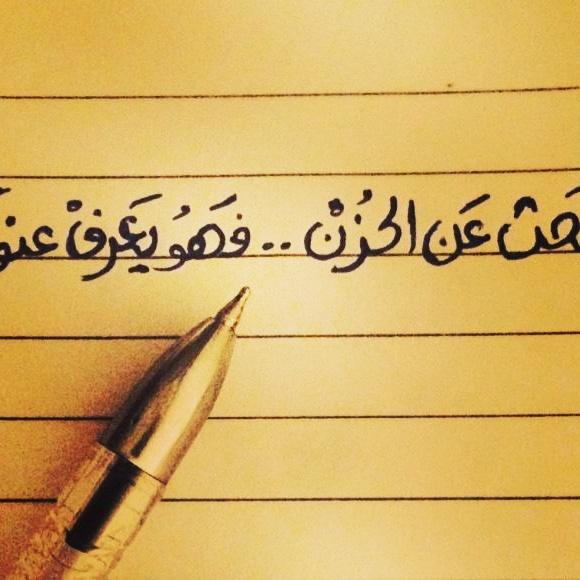 حَث عَن الحُزنْ .. فَهَوُ يَعَرفْ عنو